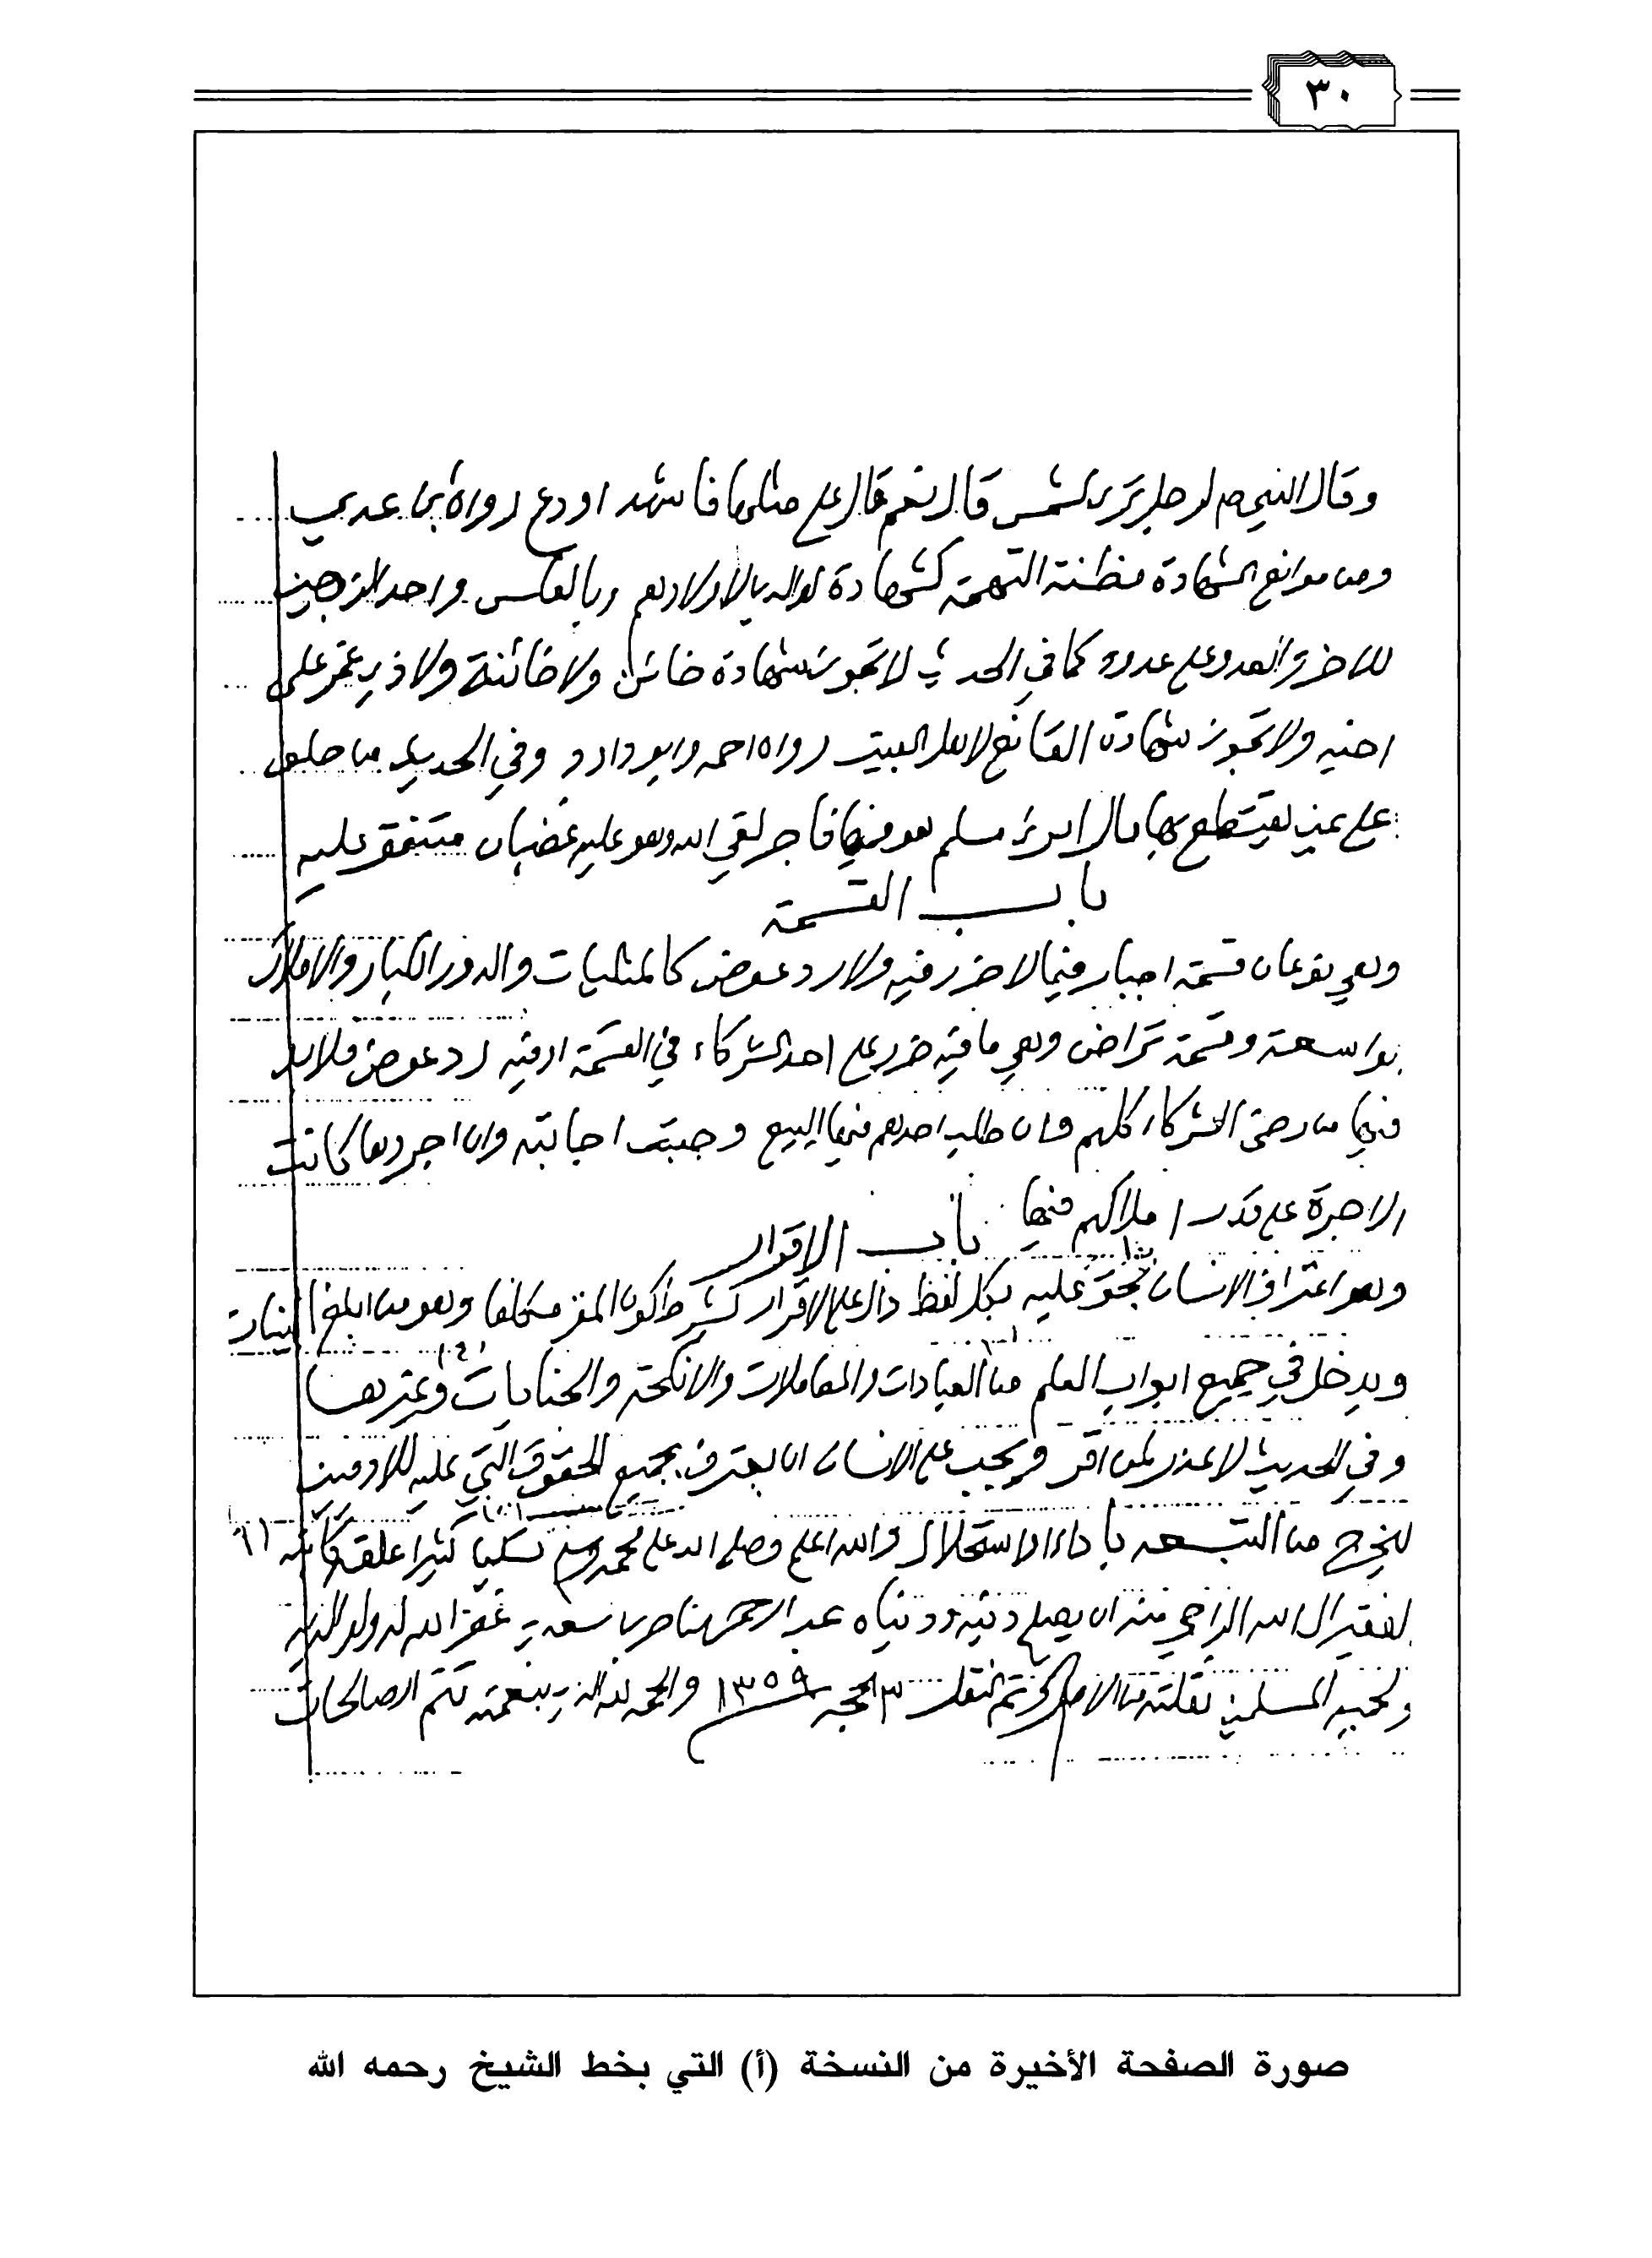 ٣٠
وقال النبي صم لرجل ترى الشمس قال نعم قال على مثلها فاشهد او دع رواه ابن عدي
ومن موانع الشهادة مظنة التهمة كشهادة الوالدين لاولادهم وبالعكس واحد الزوجين
للاخر والعدو على عدوه كما في الحديث لا تجوز شهادة خائن ولا خائنة ولا ذي غمر على
اخيه ولا تجوز شهادة القانع لاهل البيت رواه احمد وابو داود وفي الحديث من حلف
على يمين يقتطع بها مال امرئ مسلم هو فيها فاجر لقي الله وهو عليه غضبان متفق عليه
باب القسمة
وهي نوعان قسمة اجبار فيما لا ضرر فيه ولا رد عوض كالمثليات والدور الكبار والاملاك
الواسعة وقسمة تراض وهي ما فيه ضرر على احد الشركاء في القسمة او فيه رد عوض فلا بد
فيها من رضى الشركاء كلهم وان طلب احدهم فيها البيع وجبت اجابته وان اجروها كانت
الاجرة على قدر املاكهم فيها باب الاقرار
وهو اعتراف الانسان بحق عليه بكل لفظ دال على الاقرار بشرط كون المقر مكلفا وهو من ابلغ البينات
ويدخل في جميع ابواب العلم من العبادات والمعاملات والانكحة والجنايات وغيرها
وفي الحديث لا عذر لمن اقر ويجب على الانسان ان يعترف بجميع الحقوق التي عليه للادميين
ليخرج من التبعه باداء او استحلال والله اعلم وصلى الله على محمد وسلم تسليما كثيرا علقه كاتبه
الفقير الى الله الراجي منه ان يصلح دينه ودنياه عبد الرحمن بن ناصر بن سعدي غفر الله له ولوالديه
ولجميع المسلمين نقلته من الاصل وتم النقل ٣ الحجه ١٣٥٩ والحمد لله الذي بنعمته تتم الصالحات
صورة الصفحة الأخيرة من النسخة (أ) التي بخط الشيخ رحمه الله